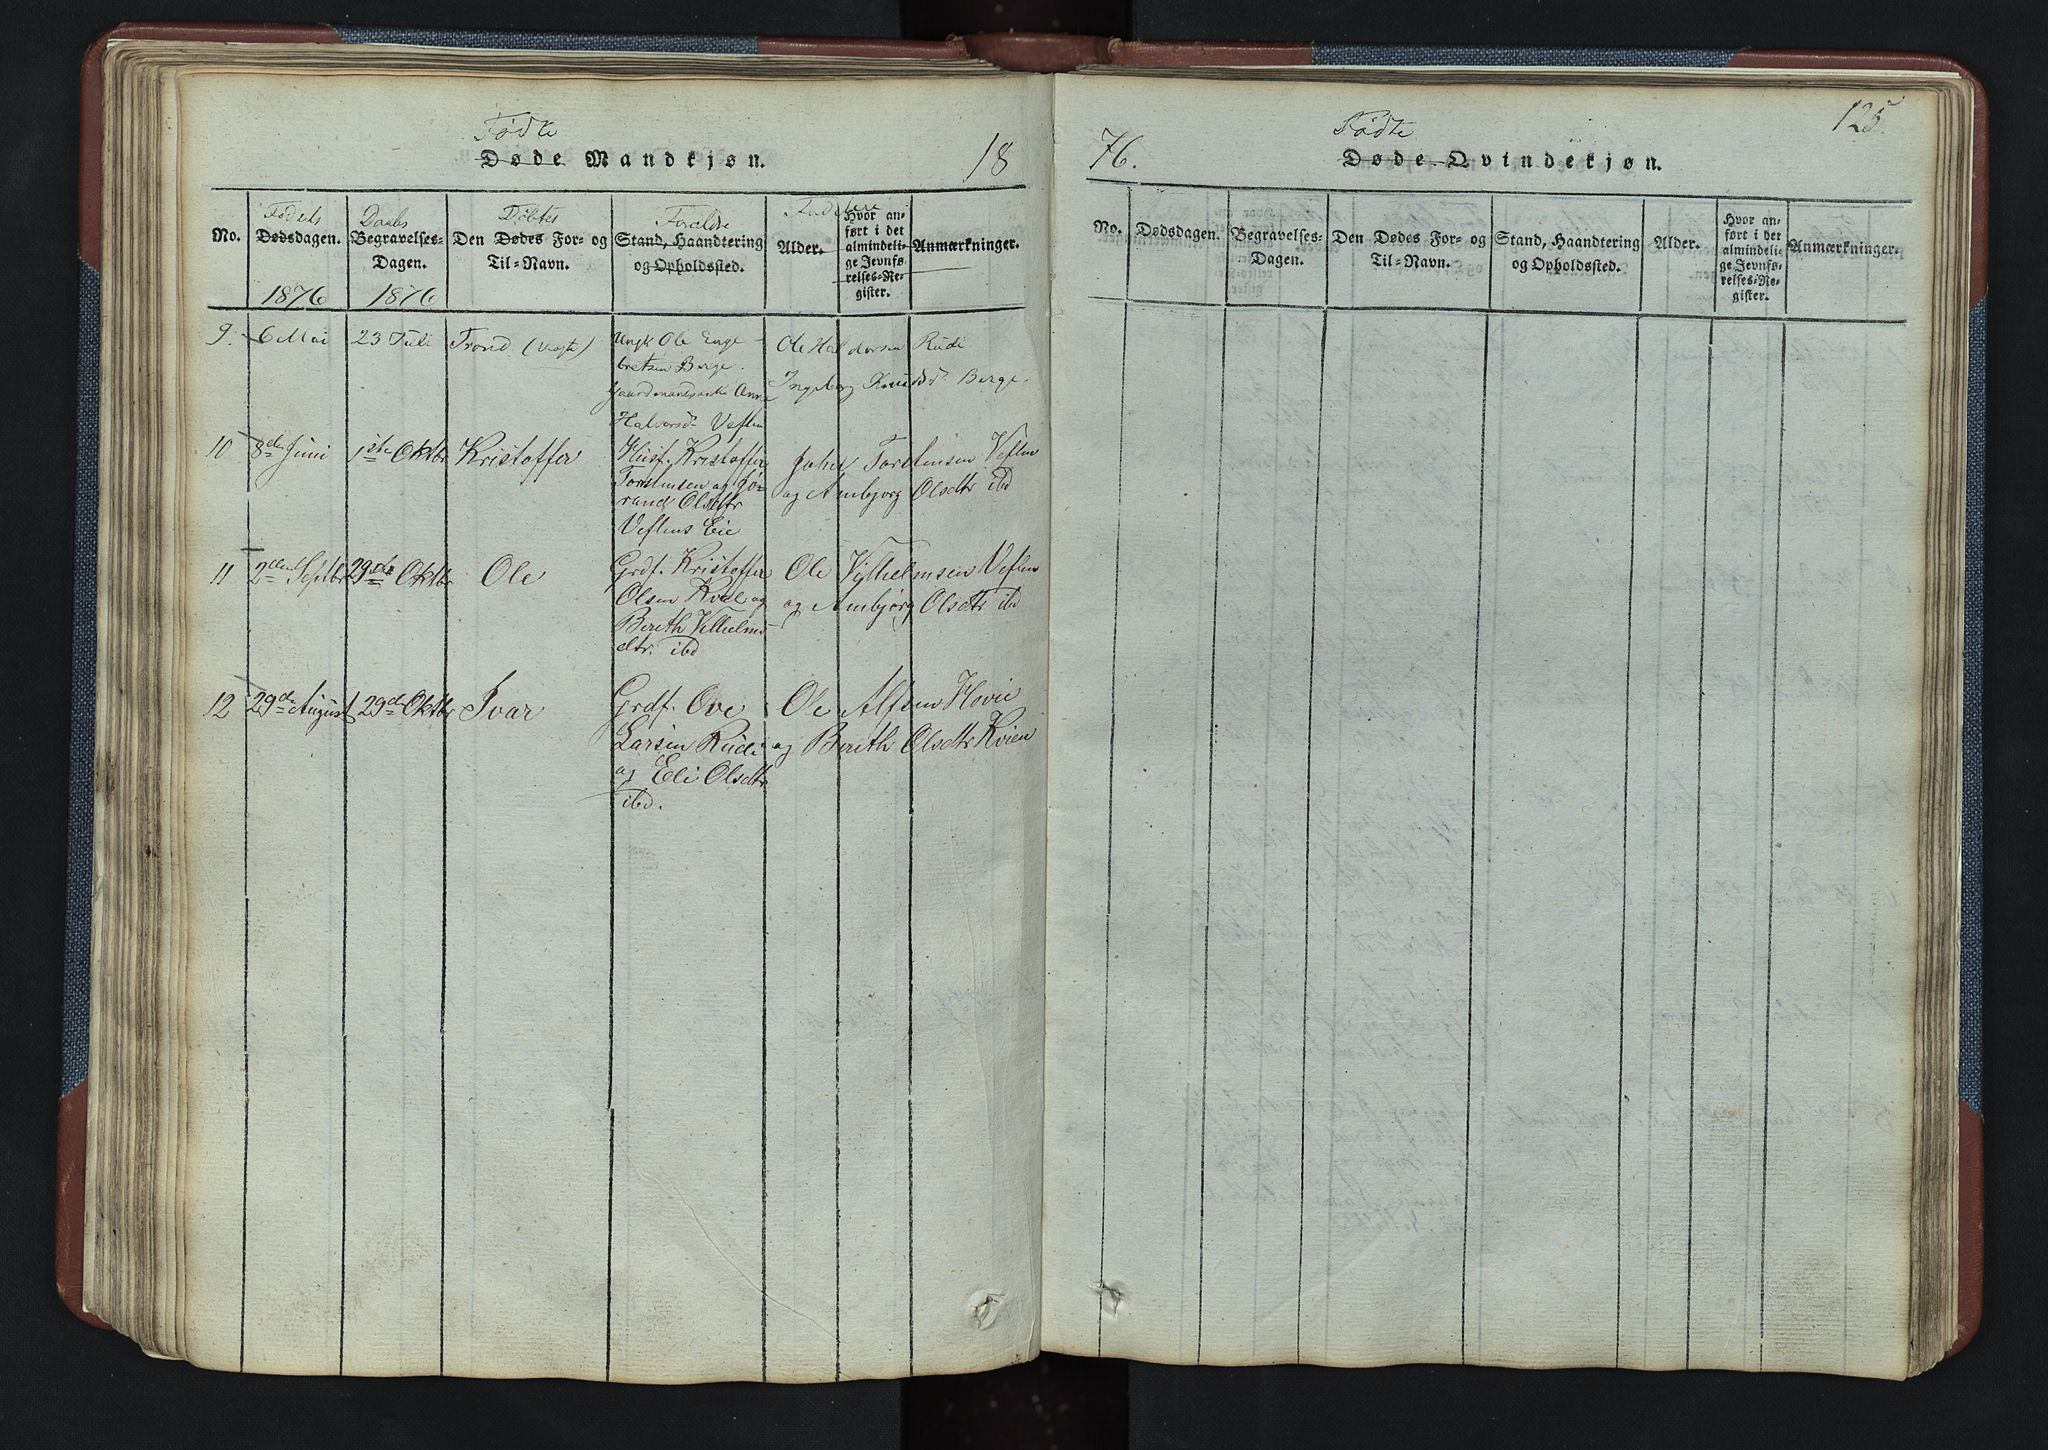 Fødte
Døde Mandkjøn.
18
No.
Fødsels
Dødsdagen.
1876
Daabs
Begravelses-
Dagen.
1876
Døbtes
Den Dødes For- og
Til-Navn.
Forældre
Stand, Haandtering
og Opholdssted.
Faddere
Alder.
Hvor an-
ført i det
almindeli-
ge Jevnfø-
relses-Re-
gister.
Anmærkninger.
9. 6 Mai 23 Juli Trond (uægte)
Ungk Ole Enge-
bretsen Berge.
Gaardmandspike Anne
Halvorsd. Veflen
Ole Haldorsen Rudi
Ingebor Knudsd. Berge.
10 8de Juni 1ste Oktbr Kristoffer
Husf. Kristoffer
Torstensen og Gø-
rand Olsdtr
Veflens Eie
John Torstensen Veflen
og Ambjorg Olsdtr ibd
11 2den Septbr 29de Oktbr Ole
Grdf. Kristoffer
Olsen Kvee og
Bereth Vilhelms-
dtr. ibd
Ole Vylhelmsen Veflen
og Ambjørg Olsdtr ibd
12 29de August 29de Oktbr Ivar
Grdf. Ove
Larsen Rudi
og Eli Olsdtr
ibd.
Ole Alfsen Hovie
og Bereth Olsdtr Kvien
76.
Fødte
Døde Qvindekjøn.
125.
No.
Dødsdagen.
Begravelses-
Dagen.
Den Dødes For- og
Til-Navn.
Stand, Haandtering
og Opholdssted.
Alder.
Hvor an-
ført i det
almindeli-
ge Jevnfø-
relses-Re-
gister.
Anmærkninger.